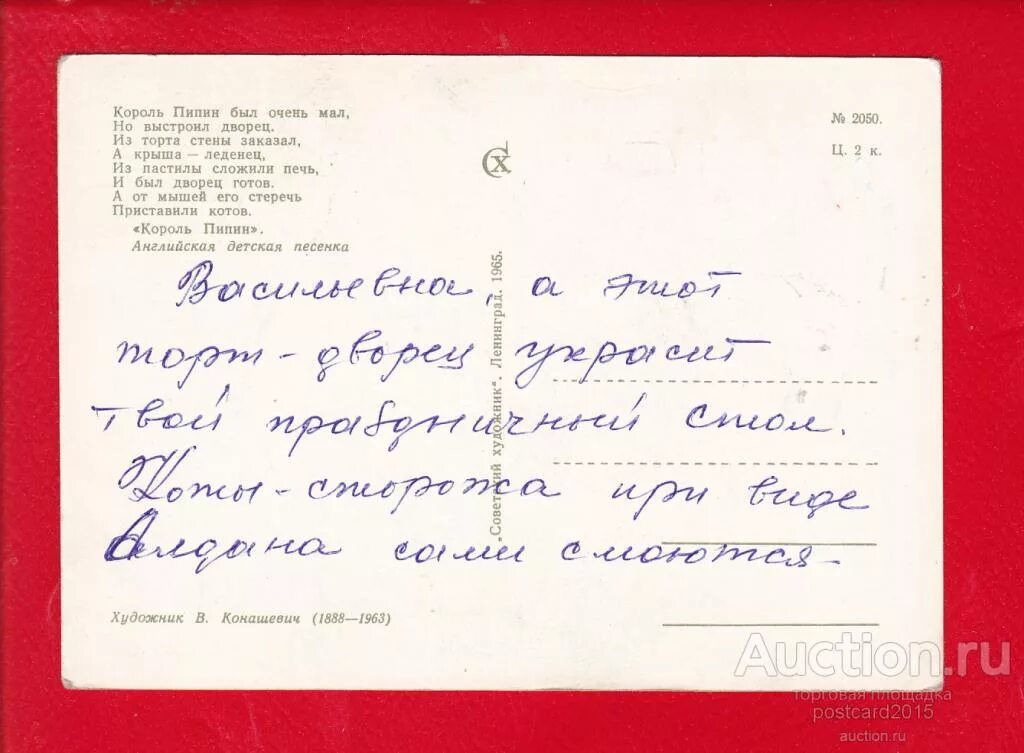 Король Пипин был очень мал,
Но выстроил дворец.
Из торта стены заказал,
А крыша — леденец,
Из пастилы сложили печь,
И был дворец готов.
А от мышей его стеречь
Приставили котов.
«Король Пипин».
Английская детская песенка
№ 2050.
Ц. 2 к.
СХ
Васильевна, а этот
торт-дворец украсит
твой праздничный стол.
Коты-сторожа при виде
Алдана сами смоются
„Советский художник“. Ленинград. 1965.
Художник В. Конашевич (1888—1963)
Auction.ru
торговая площадка
postcard2015
auction.ru